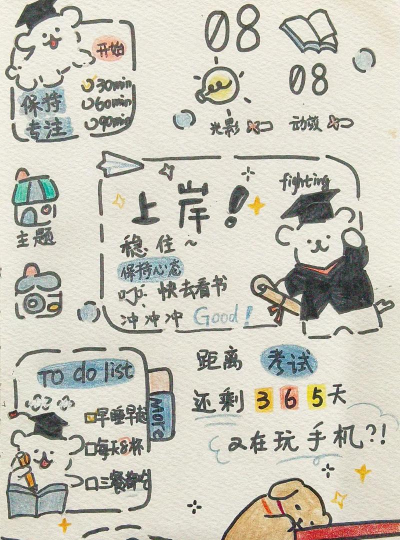 开始
30min
60min
90min
保持
专注
08
08
光影
动效
主题
fighting
上岸!
稳住~
保持心态
快去看书
冲冲冲 Good!
To do list
More
早睡早起
每天8杯
三餐
距离 考试
还剩 365天
又在玩手机?!